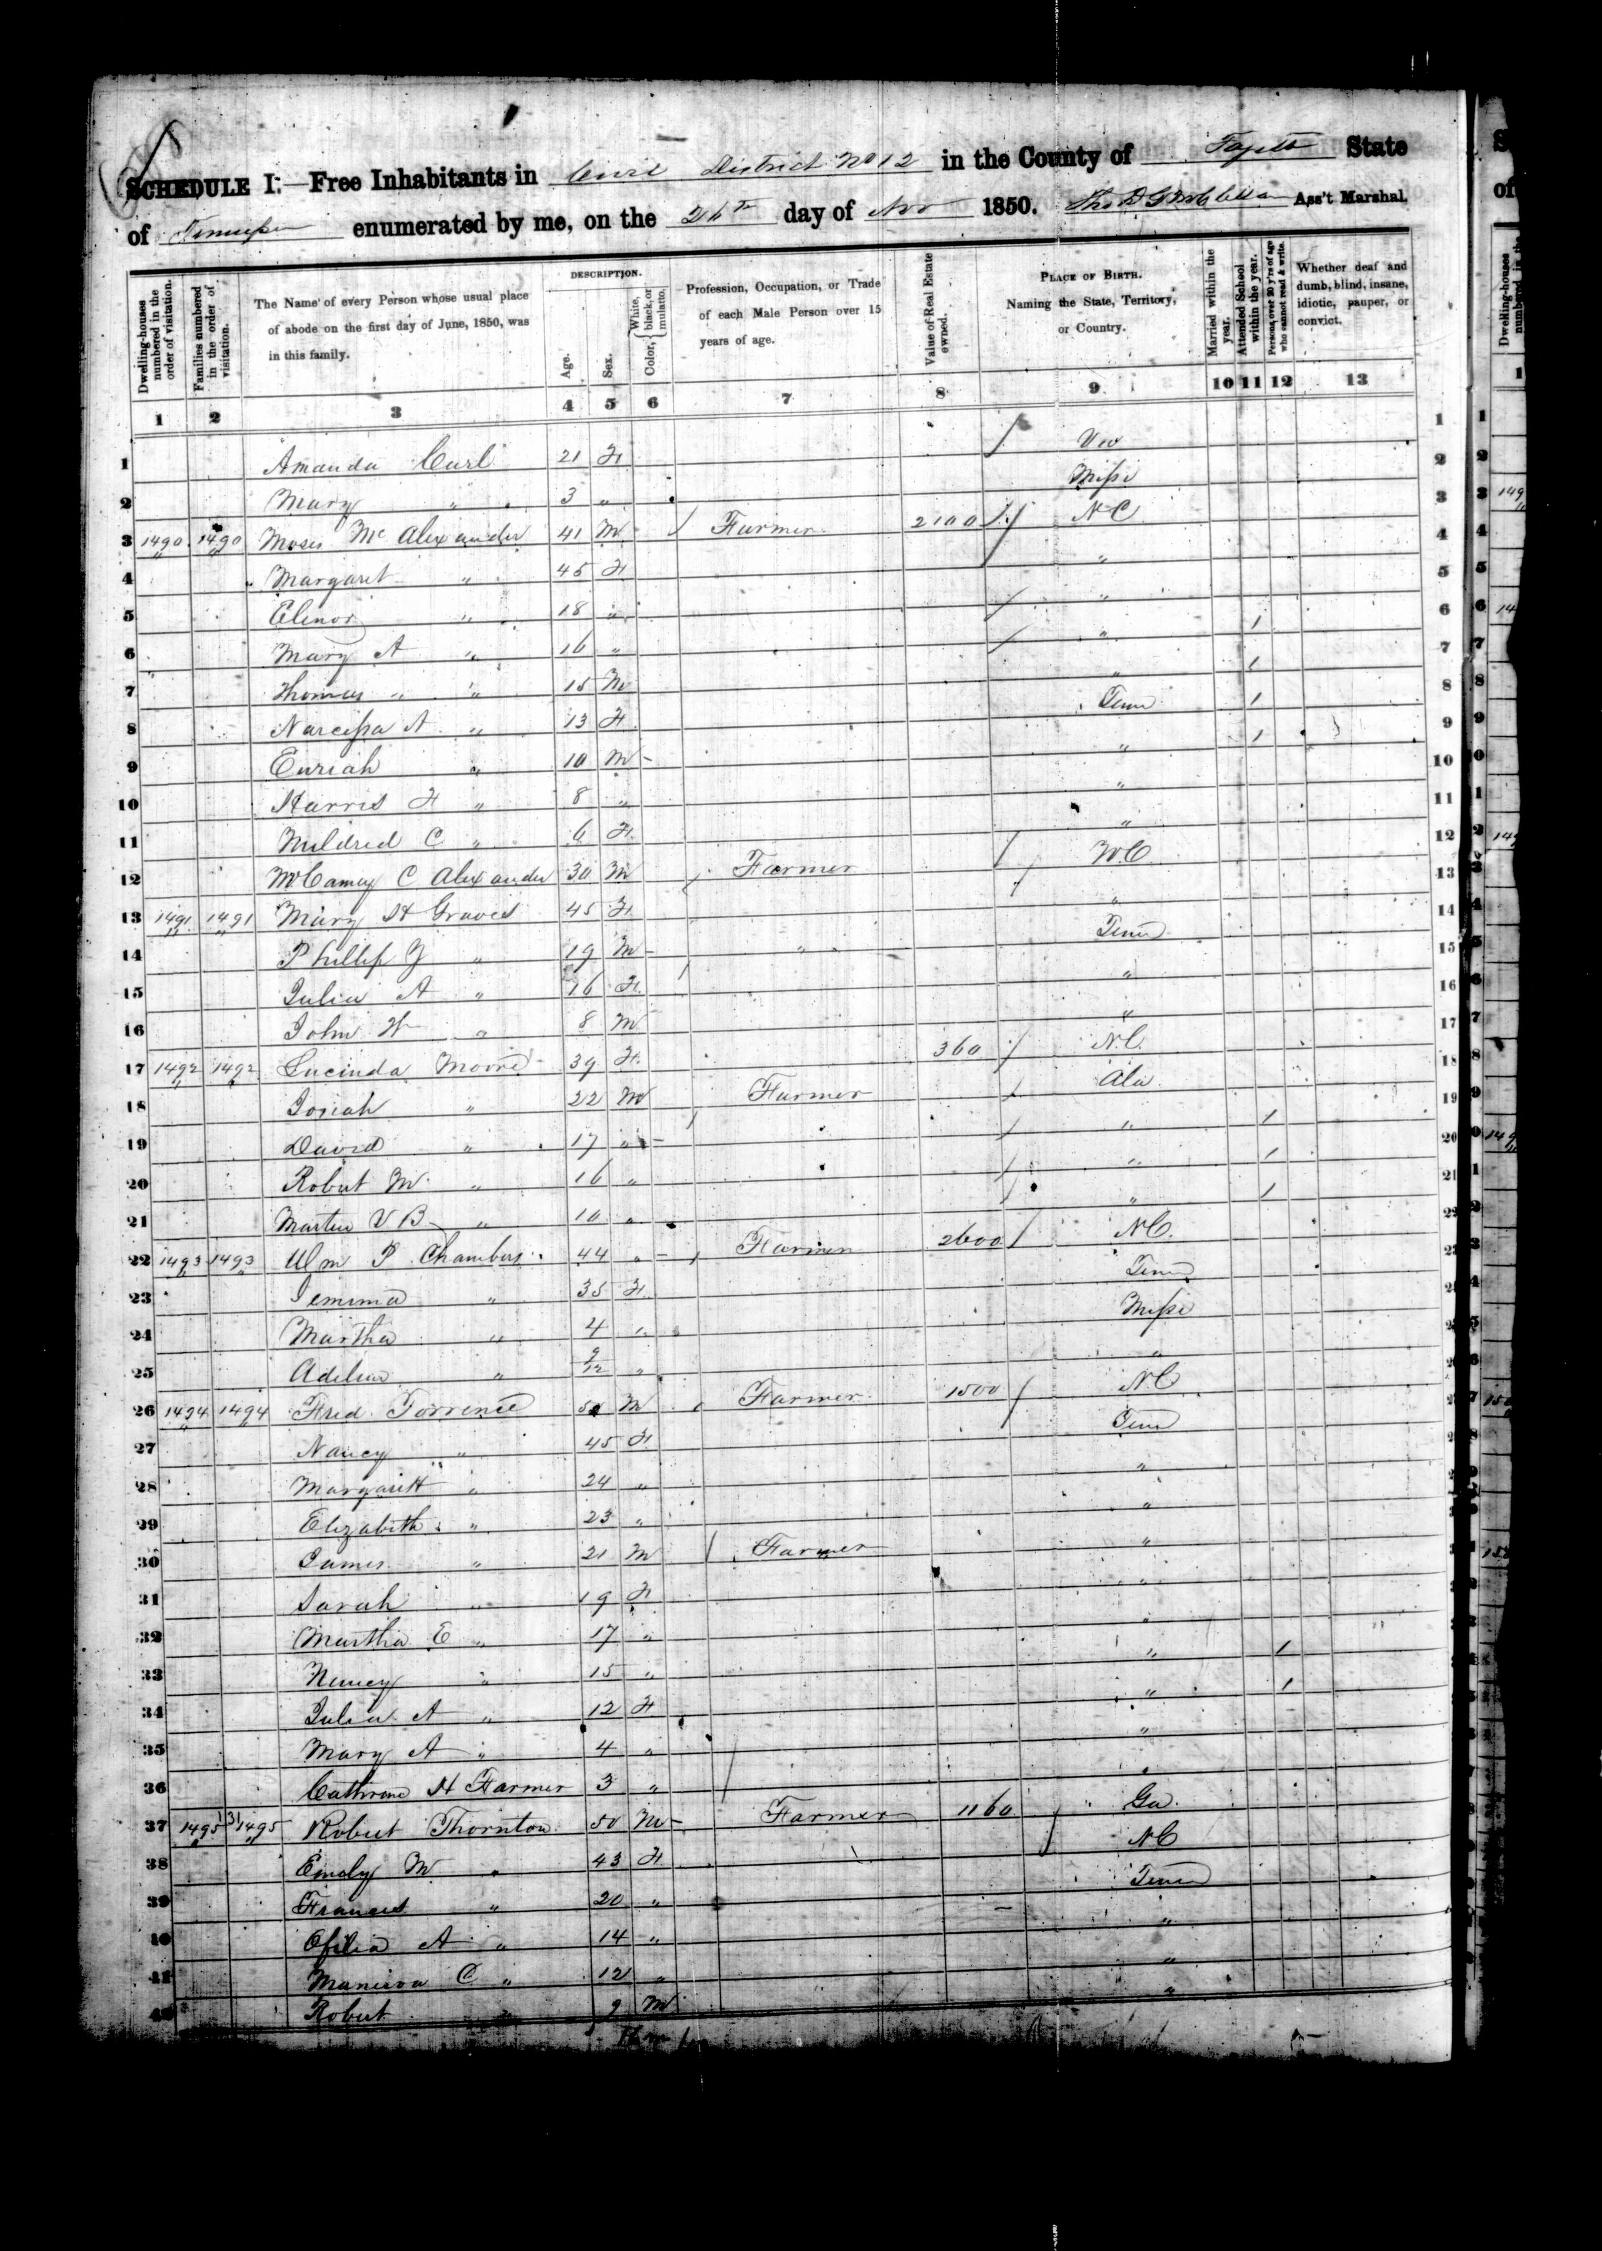 SCHEDULE I.—Free Inhabitants in Civil District No 12 in the County of Fayette State
of Tennessee enumerated by me, on the 26th day of Nov 1850. Ass't Marshal.
DESCRIPTION.
Dwelling-houses numbered in the order of visitation. Families numbered in the order of visitation. The Name of every Person whose usual place of abode on the first day of June, 1850, was in this family. Age. Sex. Color, { White, black, or mulatto. Profession, Occupation, or Trade of each Male Person over 15 years of age. Value of Real Estate owned. PLACE OF BIRTH. Naming the State, Territory, or Country. Married within the year. Attended School within the year. Persons over 20 y'rs of age who cannot read & write. Whether deaf and dumb, blind, insane, idiotic, pauper, or convict.
1 2 3 4 5 6 7 8 9 10 11 12 13
1 Amanda Curl 21 F / Va 1
2 Mary " 3 " Missi 2
3 1490 1490 Moses Mc Alexander 41 M / Farmer 2100 / N C 3
4 Margaret " 45 F " 4
5 Elenor " 18 " / " 5
6 Mary A " 16 " / " 1 6
7 Thomas " " 15 M " 1 7
8 Narcissa A " 13 F Tenn 1 8
9 Euriah " 10 M " 1 9
10 Harris H " 8 " " 10
11 Mildred C " 6 F " 11
12 McCamey C Alexander 30 M Farmer / N.C. 12
13 1491 1491 Mary H Graves 45 F " 13
14 Phillip Y " 19 M " Tenn 14
15 Julia A " 16 F " 15
16 John W " 8 M " 16
17 1492 1492 Lucinda Moore 39 F 360 / N.C. 17
18 Josiah " 22 M Farmer / Ala 18
19 David " 17 " / " 1 19
20 Robert M. " 16 " / " 1 20
21 Martin V B " 10 " / " 1 21
22 1493 1493 Wm P. Chambers 44 " Farmer 2600 / N.C. 22
23 Jemima " 35 F Tenn
24 Martha " 4 " Missi
25 Adeline " 9/12 " "
26 1494 1494 Fred. Torrence M Farmer 1500 / N C
27 Nancy " 45 F Tenn
28 Margarett " 24 " "
29 Elizabeth " 23 " "
30 James " 21 M / Farmer "
31 Sarah " 19 F "
32 Martha E " 17 " "
33 Nancy " 15 " " 1
34 Julia A " 12 F " 1
35 Mary A " 4 " "
36 Cathrine H Farmer 3 " "
37 1495 1495 Robert Thornton 50 M Farmer 1160 Ga.
38 Emily M " 43 F N C
39 Frances " 20 " Tenn
40 Ofelia A " 14 " "
41 Manerva C " 12 " "
42 Robert " 9 M "